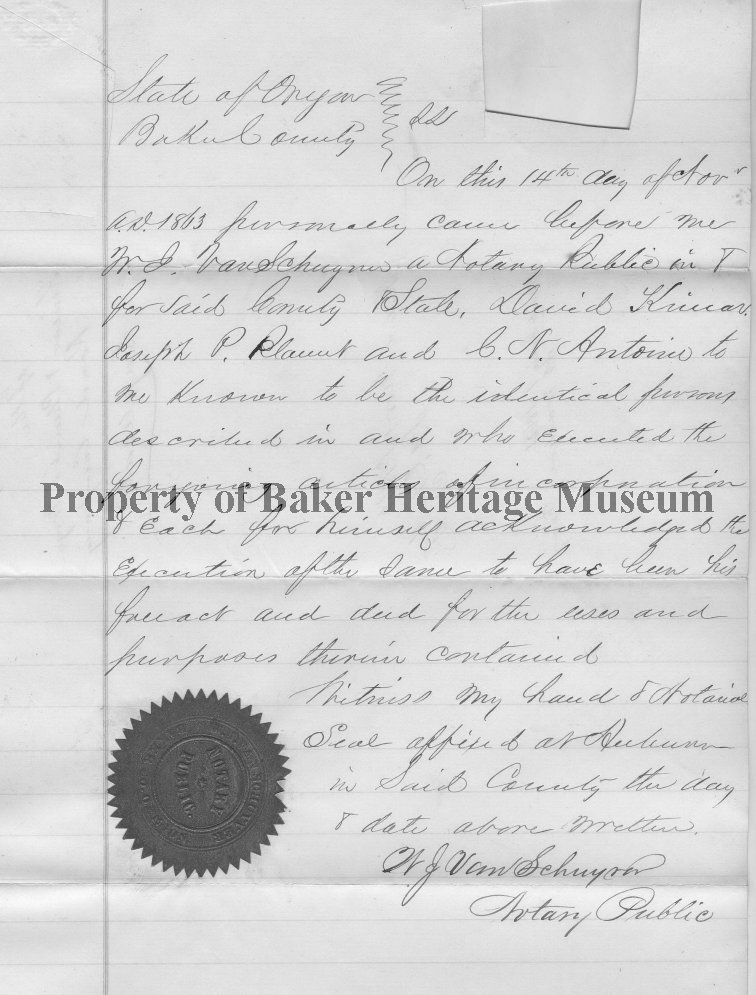 State of Oregon
Baker County } SS
On this 14th day of Novr
A.D. 1863 personally came before me
W. J. Van Schuyver a Notary Public in &
for said County & State, David
Joseph P. and C. N. Antoine to
me Known to be the identical persons
described in and who executed the
foregoing articles of incorporation
Property of Baker Heritage Museum
& Each for himself acknowledged the
Execution of the same to have been his
free act and deed for the uses and
purposes therein contained
Witness My hand & Notarial
Seal affixed at Auburn
in Said County the day
& date above written.
W J Van Schuyver
Notary Public
NOTARY
PUBLIC